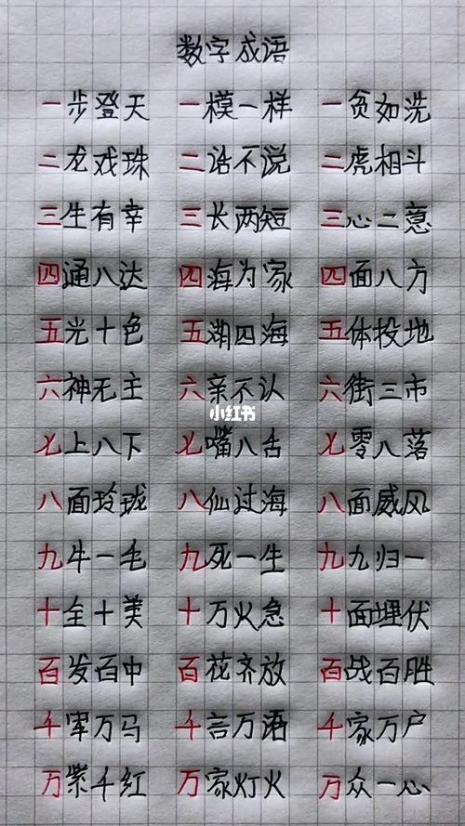 数字成语
一步登天 一模一样 一贫如洗
二龙戏珠 二话不说 二虎相斗
三生有幸 三长两短 三心二意
四通八达 四海为家 四面八方
五光十色 五湖四海 五体投地
六神无主 六亲不认 六街三市
小红书
七上八下 七嘴八舌 七零八落
八面玲珑 八仙过海 八面威风
九牛一毛 九死一生 九九归一
十全十美 十万火急 十面埋伏
百发百中 百花齐放 百战百胜
千军万马 千言万语 千家万户
万紫千红 万家灯火 万众一心